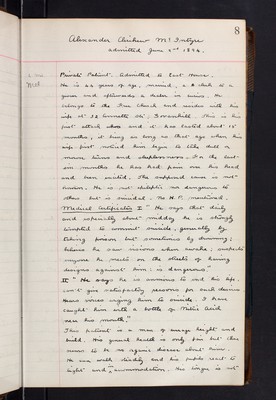 8
Alexander Cruikow McIntyre
admitted June 2nd 1894.
Private Patient. Admitted to East House.
He is 44 years of age, married, a clerk to a
and afterwards a dealer in wines. He
belongs to the Free Church and resides with his
wife at 12 St; . This is his
first attack and it has lasted about 18
months, it being as long as that ago when his
wife first noticed him begin to
and sleeplessness. For the last
six months he has had pains in his head
and been excited. The supposed cause is not
known. He is not epileptic nor dangerous to
others but is suicidal.
Medical Certificates I "He says that daily
and especially about midday he is strongly
tempted to commit suicide, generally by
taking poison but sometimes by drowning;
believes he saw visions when awake; suspects
anyone he meets on the streets of having
designs against him: is dangerous."
II "He says he is anxious to end his life,
can't give satisfactory reasons for such desire
Hears voices urging him to suicide. I have
caught him with a bottle of Acid
near his mouth."
This patient is a man of average height and
build. His general health is only fair but there
seems to be no organic disease about him.
He can walk steadily and his pupils react to
light and accommodation. His tongue is not